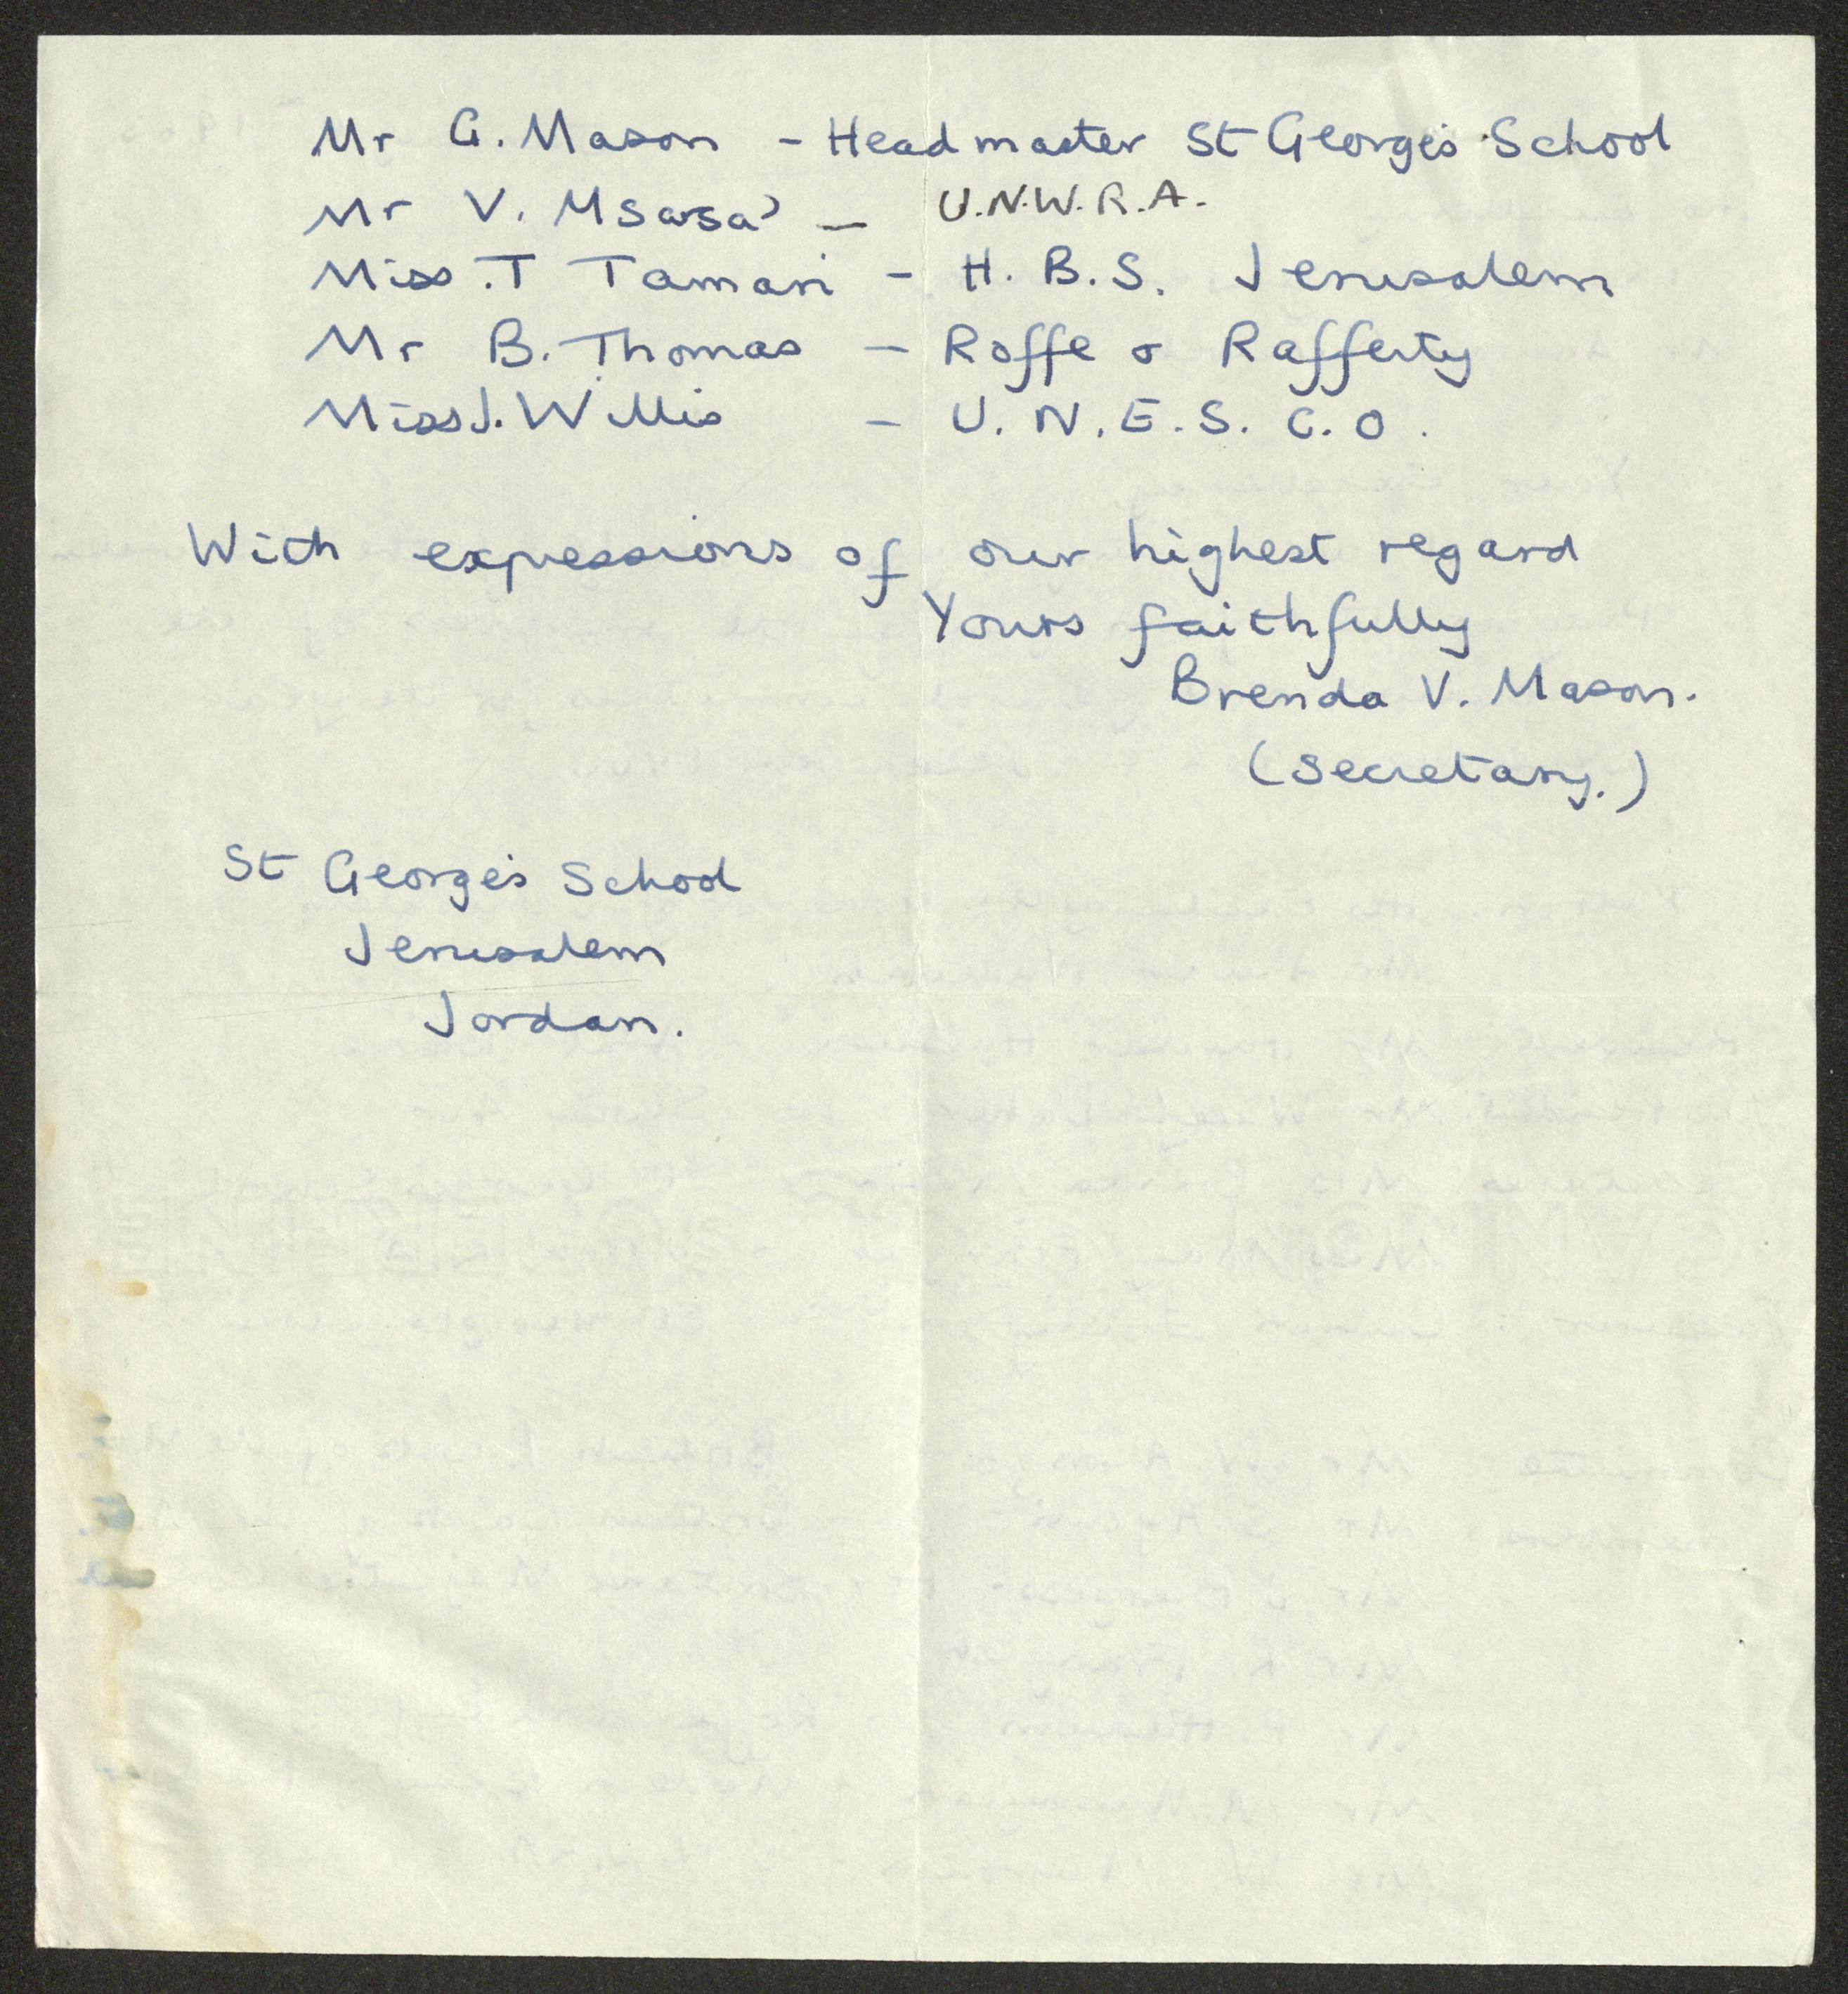 Mr G. Mason - Headmaster St George's School
Mr V. Msarsa' - U.N.W.R.A.
Miss. T Tamari - H. B. S. Jerusalem
Mr B. Thomas - Roffe & Rafferty
Miss J. Willis - U. N. E. S. C. O.
With expressions of our highest regard
Yours faithfully
Brenda V. Mason.
(Secretary.)
St George's School
Jerusalem
Jordan.